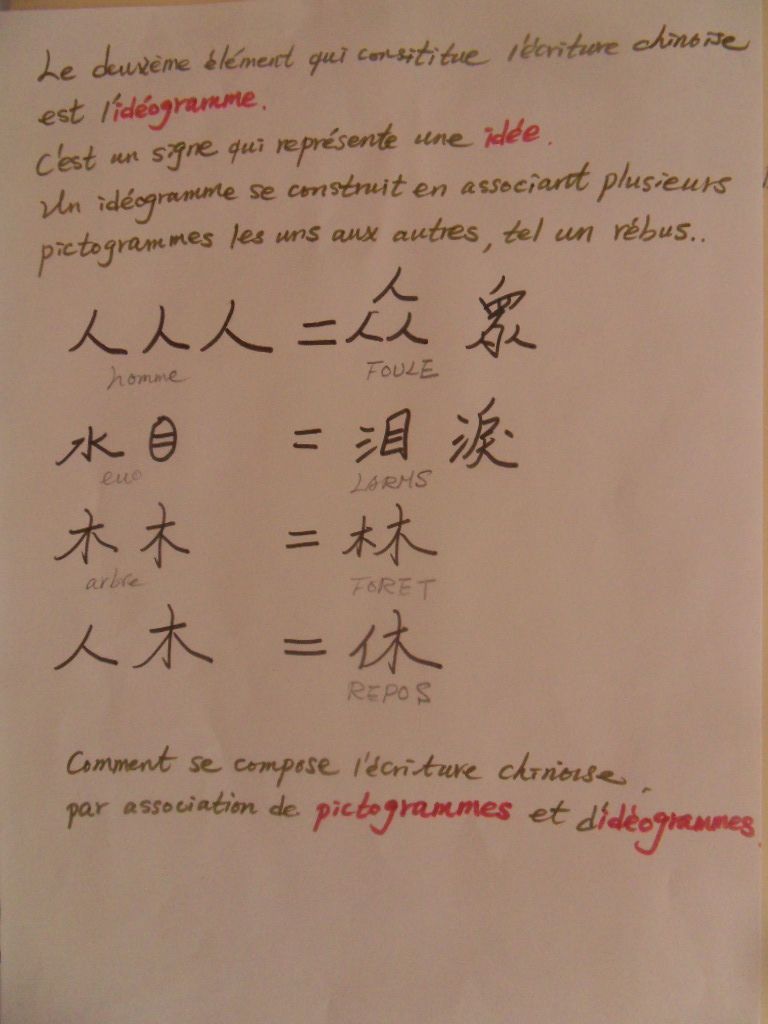 Le deuxème élément qui consititue l'écriture chinoise
est l'idéogramme.
C'est un signe qui représente une idée.
Un idéogramme se construit en associant plusieurs
pictogrammes les uns aux autres, tel un rébus..
人 人 人 = 众 眾
homme FOULE
水 目 = 泪 淚
eau LARMS
木 木 = 林
arbre FORET
人 木 = 休
REPOS
Comment se compose l'écriture chinoise.
par association de pictogrammes et d'idéogrammes.